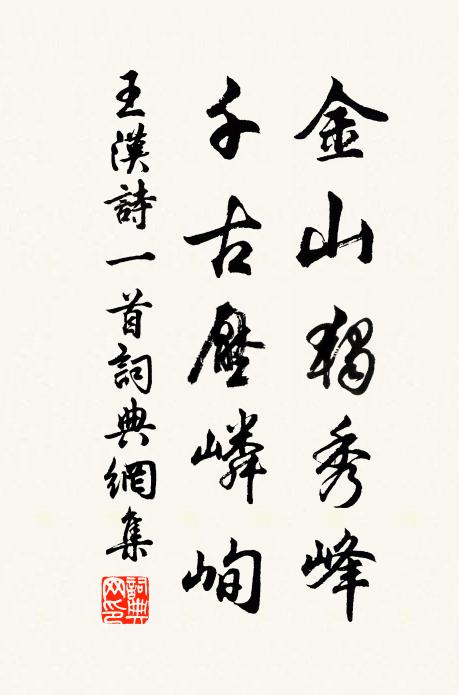 金山獨秀峰
千古壓嶙峋
王漢詩一首詞典網集
詞典網印